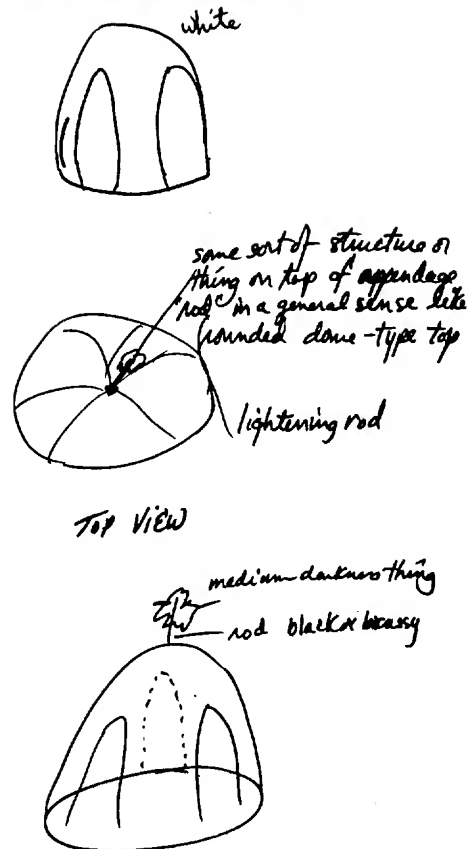 white
some sort of structure or
thing on top of appendage
"rod" in a general sense like
rounded dome-type top
lightening rod
TOP VIEW
medium darkness thing
rod black or brassy